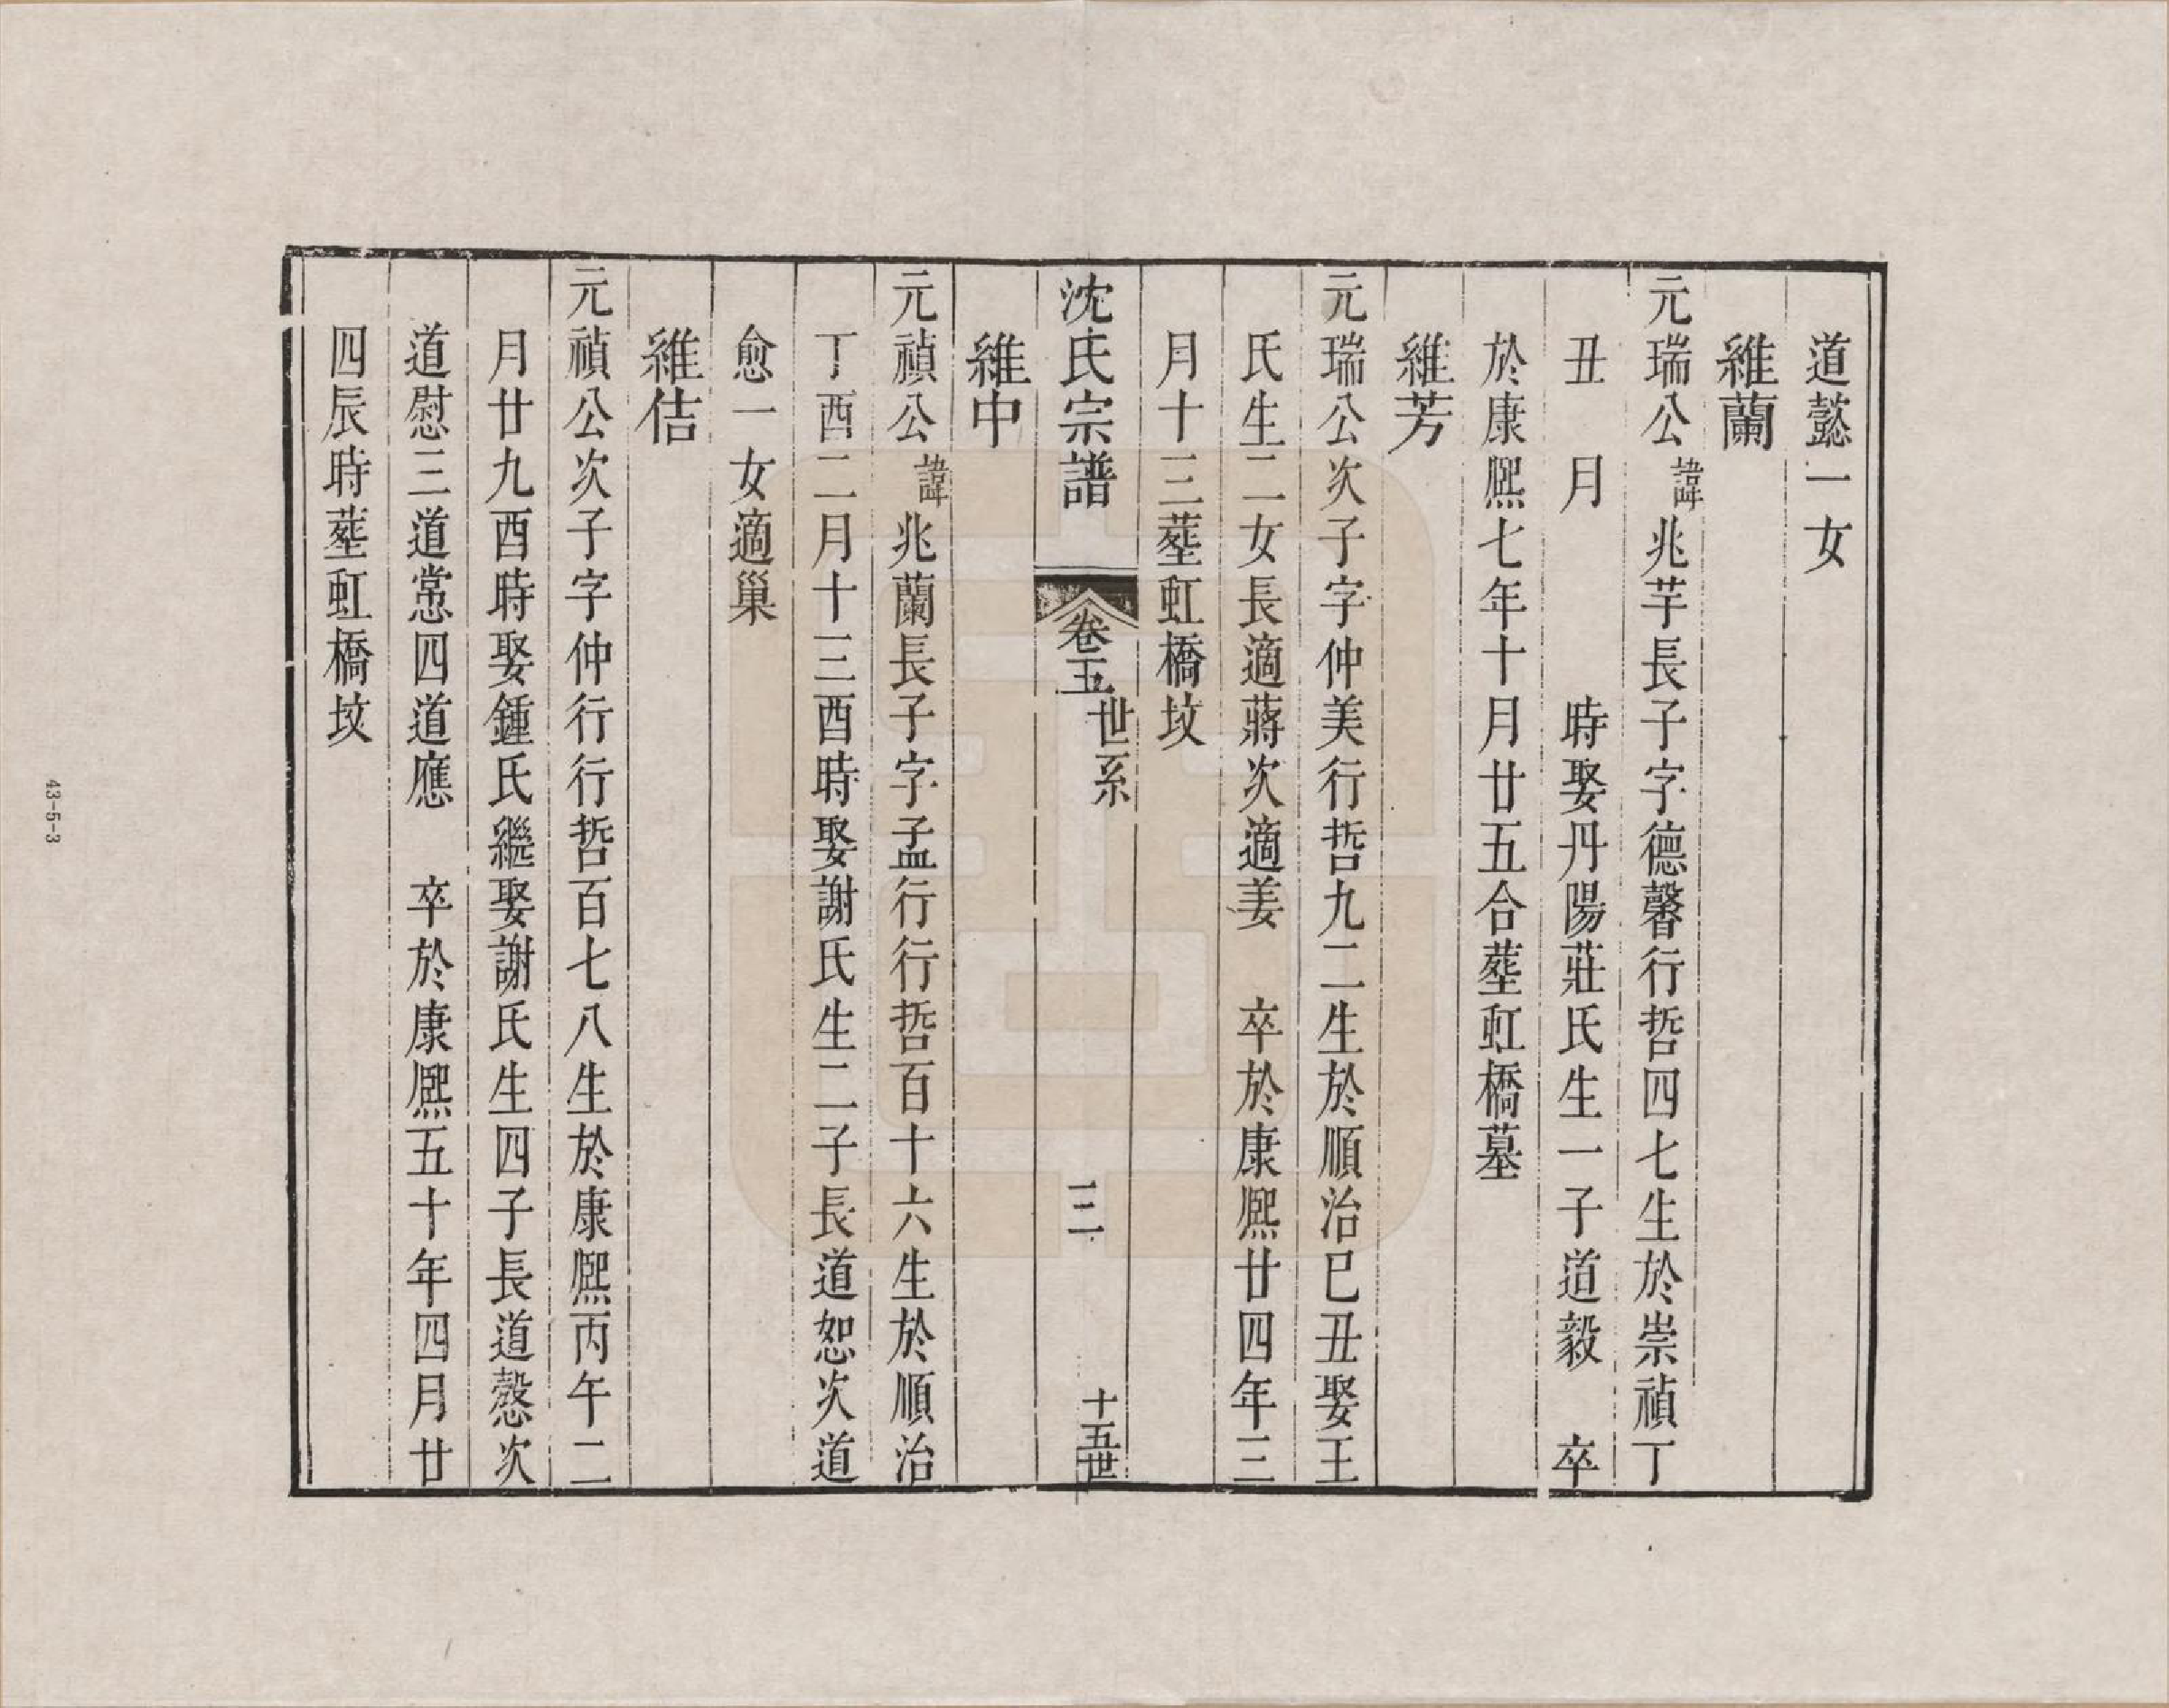 道懿一女
維蘭
元瑞公諱兆芊長子字德馨行哲四七生於崇禎丁
丑　月　　　時娶丹陽莊氏生一子道毅　卒
於康熙七年十月廿五合塟虹橋墓
維芳
元瑞公次子字仲美行哲九二生於順治巳丑娶王
氏生二女長適蔣次適姜　卒於康熙廿四年三
月十三塟虹橋坟
沈氏宗譜　卷五　世系　三　十五世
維中
元禎公諱兆蘭長子字孟行行哲百十六生於順治
丁酉二月十三酉時娶謝氏生二子長道恕次道
愈一女適巢
維佶
元禎公次子字仲行行哲百七八生於康熙丙午二
月廿九酉時娶鍾氏繼娶謝氏生四子長道慤次
道慰三道常四道應　卒於康熙五十年四月廿
四辰時塟虹橋坟
43-5-3